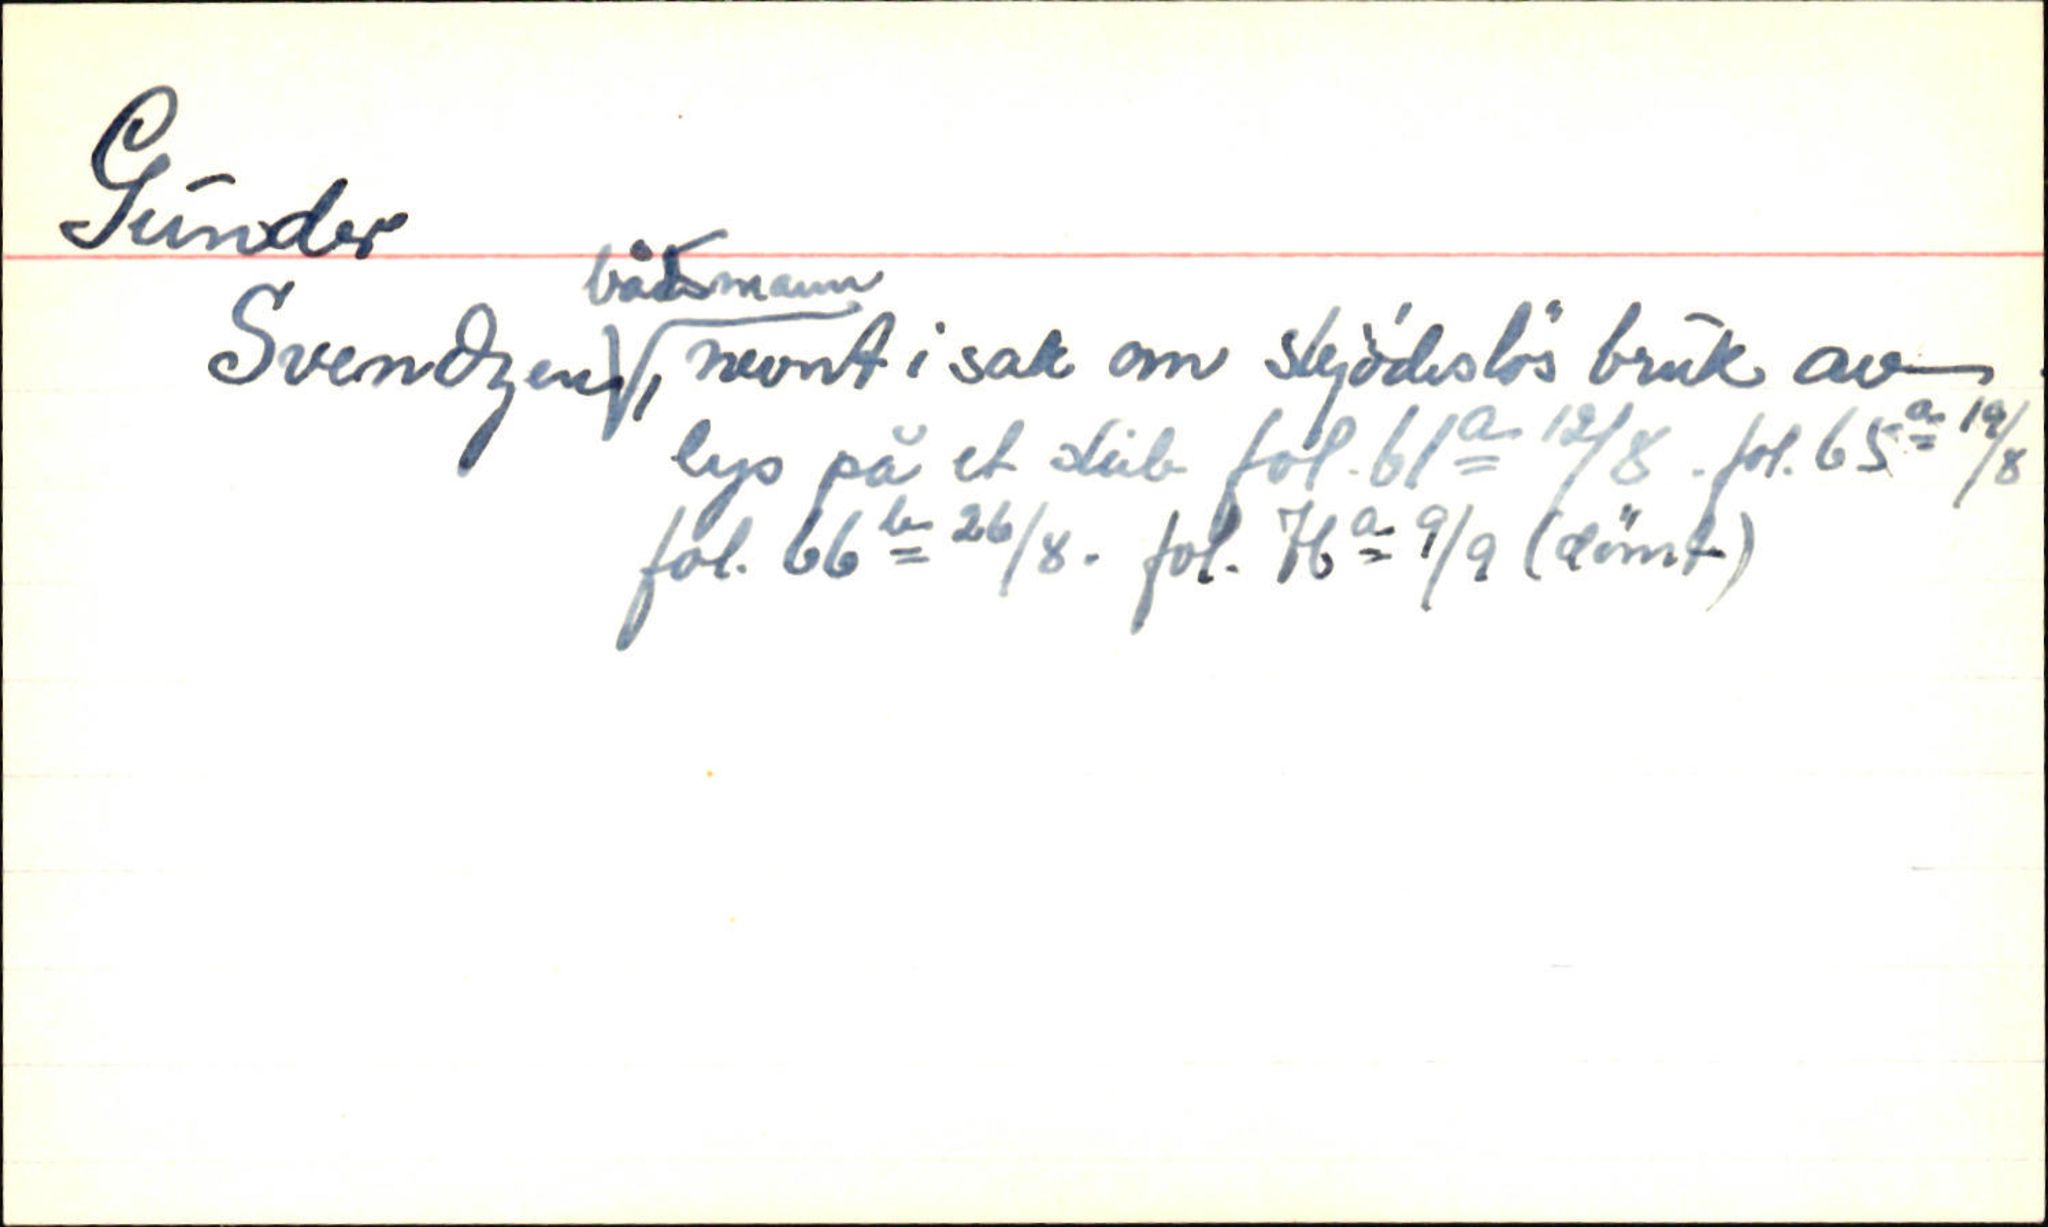 Gunder
båtsmann
Svendzen, nevnt i sak om skjödeslös bruk av
lys på et skib fol. 61a 12/8. fol. 65a 19/8
fol. 66b 26/8. fol. 76a 9/9 (dömt)